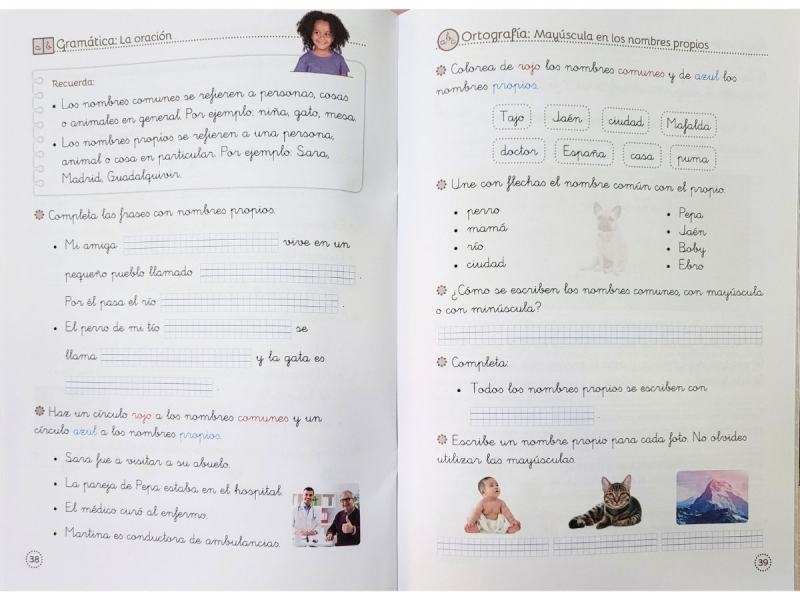 a b Gramática: La oración
Recuerda:
• Los nombres comunes se refieren a personas, cosas
o animales en general. Por ejemplo: niña, gato, mesa.
• Los nombres propios se refieren a una persona,
animal o cosa en particular. Por ejemplo: Sara,
Madrid, Guadalquivir.
Completa las frases con nombres propios.
• Mi amiga vive en un
pequeño pueblo llamado .
Por él pasa el río .
• El perro de mi tío se
llama y la gata es
.
Haz un círculo rojo a los nombres comunes y un
círculo azul a los nombres propios.
• Sara fue a visitar a su abuelo.
• La pareja de Pepa estaba en el hospital.
• El médico curó al enfermo.
• Martina es conductora de ambulancias.
38
abc Ortografía: Mayúscula en los nombres propios
Colorea de rojo los nombres comunes y de azul los
nombres propios.
Tajo Jaén ciudad Mafalda
doctor España casa puma
Une con flechas el nombre común con el propio.
• perro • Pepa
• mamá • Jaén
• río • Boby
• ciudad • Ebro
¿Cómo se escriben los nombres comunes, con mayúscula
o con minúscula?
Completa:
• Todos los nombres propios se escriben con
.
Escribe un nombre propio para cada foto. No olvides
utilizar las mayúsculas.
39